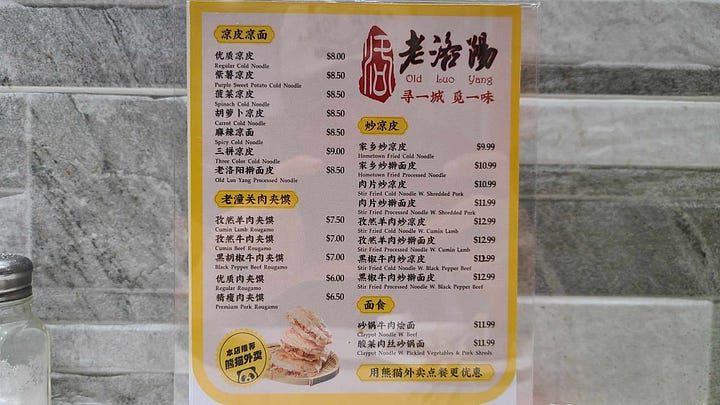 凉皮凉面
优质凉皮 $8.00
Regular Cold Noodle
紫薯凉皮 $8.50
Purple Sweet Potato Cold Noodle
菠菜凉皮 $8.50
Spinach Cold Noodle
胡萝卜凉皮 $8.50
Carrot Cold Noodle
麻辣凉面 $8.50
Spicy Cold Noodle
三拼凉皮 $9.00
Three Color Cold Noodle
老洛阳擀面皮 $8.50
Old Luo Yang Processed Noodle
老潼关肉夹馍
孜然羊肉夹馍 $7.50
Cumin Lamb Rougamo
孜然牛肉夹馍 $7.00
Cumin Beef Rougamo
黑胡椒牛肉夹馍 $7.00
Black Pepper Beef Rougamo
优质肉夹馍 $6.00
Regular Rougamo
精瘦肉夹馍 $6.50
Premium Pork Rougamo
本店推荐
熊猫外卖
老洛阳
Old Luo Yang
寻一城 觅一味
炒凉皮
家乡炒凉皮 $9.99
Hometown Fried Cold Noodle
家乡炒擀面皮 $10.99
Hometown Fried Processed Noodle
肉片炒凉皮 $10.99
Stir Fried Cold Noodle W. Shredded Pork
肉片炒擀面皮 $11.99
Stir Fried Processed Noodle W. Shredded Pork
孜然羊肉炒凉皮 $12.99
Stir Fried Cold Noodle W. Cumin Lamb
孜然羊肉炒擀面皮 $12.99
Stir Fried Processed Noodle W. Cumin Lamb
黑椒牛肉炒凉皮
Stir Fried Cold Noodle W. Black Pepper Beef
黑椒牛肉炒擀面皮 $12.99
Stir Fried Processed Noodle W. Black Pepper Beef
面食
砂锅牛肉烩面 $11.99
Claypot Noodle W. Beef
酸菜肉丝砂锅面 $11.99
Claypot Noodle W. Pickled Vegetables & Pork Shreds
用熊猫外卖点餐更优惠